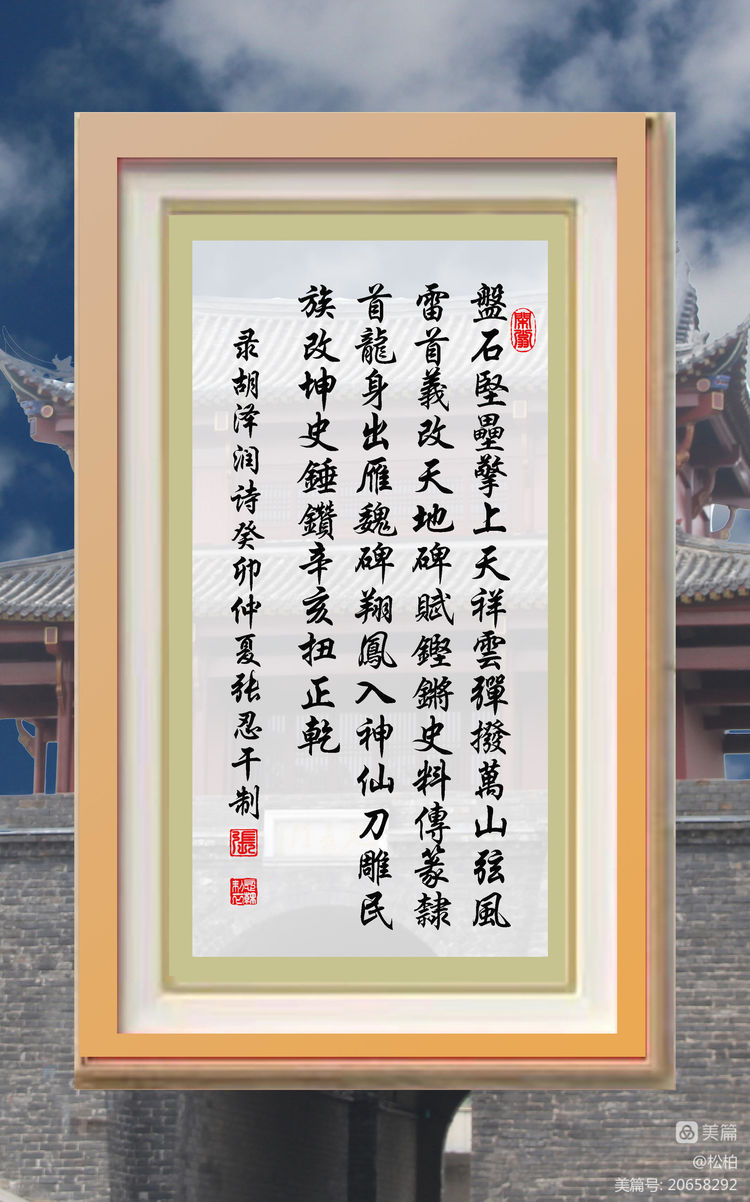 盤石堅壘擎上天祥雲彈撥萬山弦風
雷首義改天地碑賦鏗鏘史料傳篆隸
首龍身出雁魏碑翔鳳入神仙刀雕民
族改坤史錘鑽辛亥扭正乾
录胡泽润诗癸卯仲夏张忍干制
張
美篇
@松柏
美篇号: 20658292